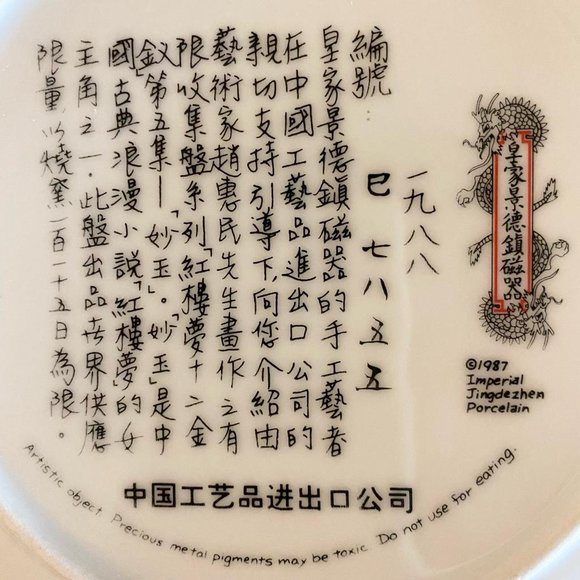 皇家景德鎮磁器
©1987
Imperial
Jingdezhen
Porcelain
一九八八
編號:
巳 七八五五
皇家景德鎮磁器的手工藝者
在中國工藝品進出口公司的
親切支持引導下,向您介紹由
藝術家趙惠民先生畫作之有
限收集盤系列「紅樓夢十二金
釵」第五集—「妙玉」。「妙玉」是中
國古典浪漫小說「紅樓夢」的女
主角之一.此盤出品世界供應
限量以燒窯一百一十五日為限。
中国工艺品进出口公司
Artistic object. Precious metal pigments may be toxic. Do not use for eating.